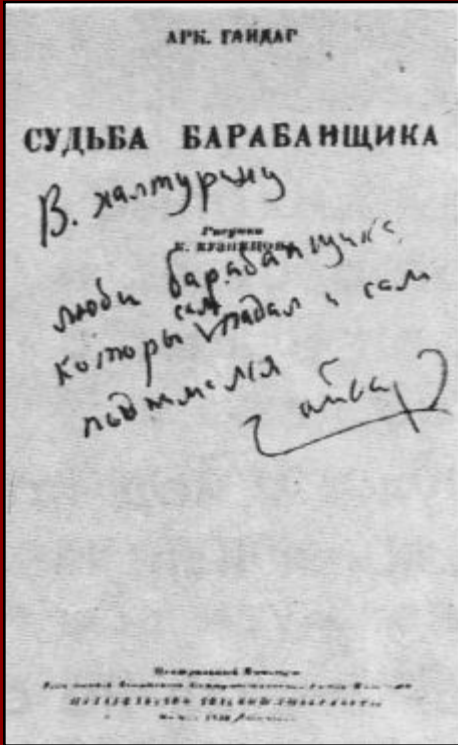 АРК. ГАЙДАР
СУДЬБА БАРАБАНЩИКА
В. Халтурину
Рисунки
К. КУЗНЕЦОВА
люби барабанщика
которы сам падал и сам
поднимался
Гайдар
Центральный Комитет